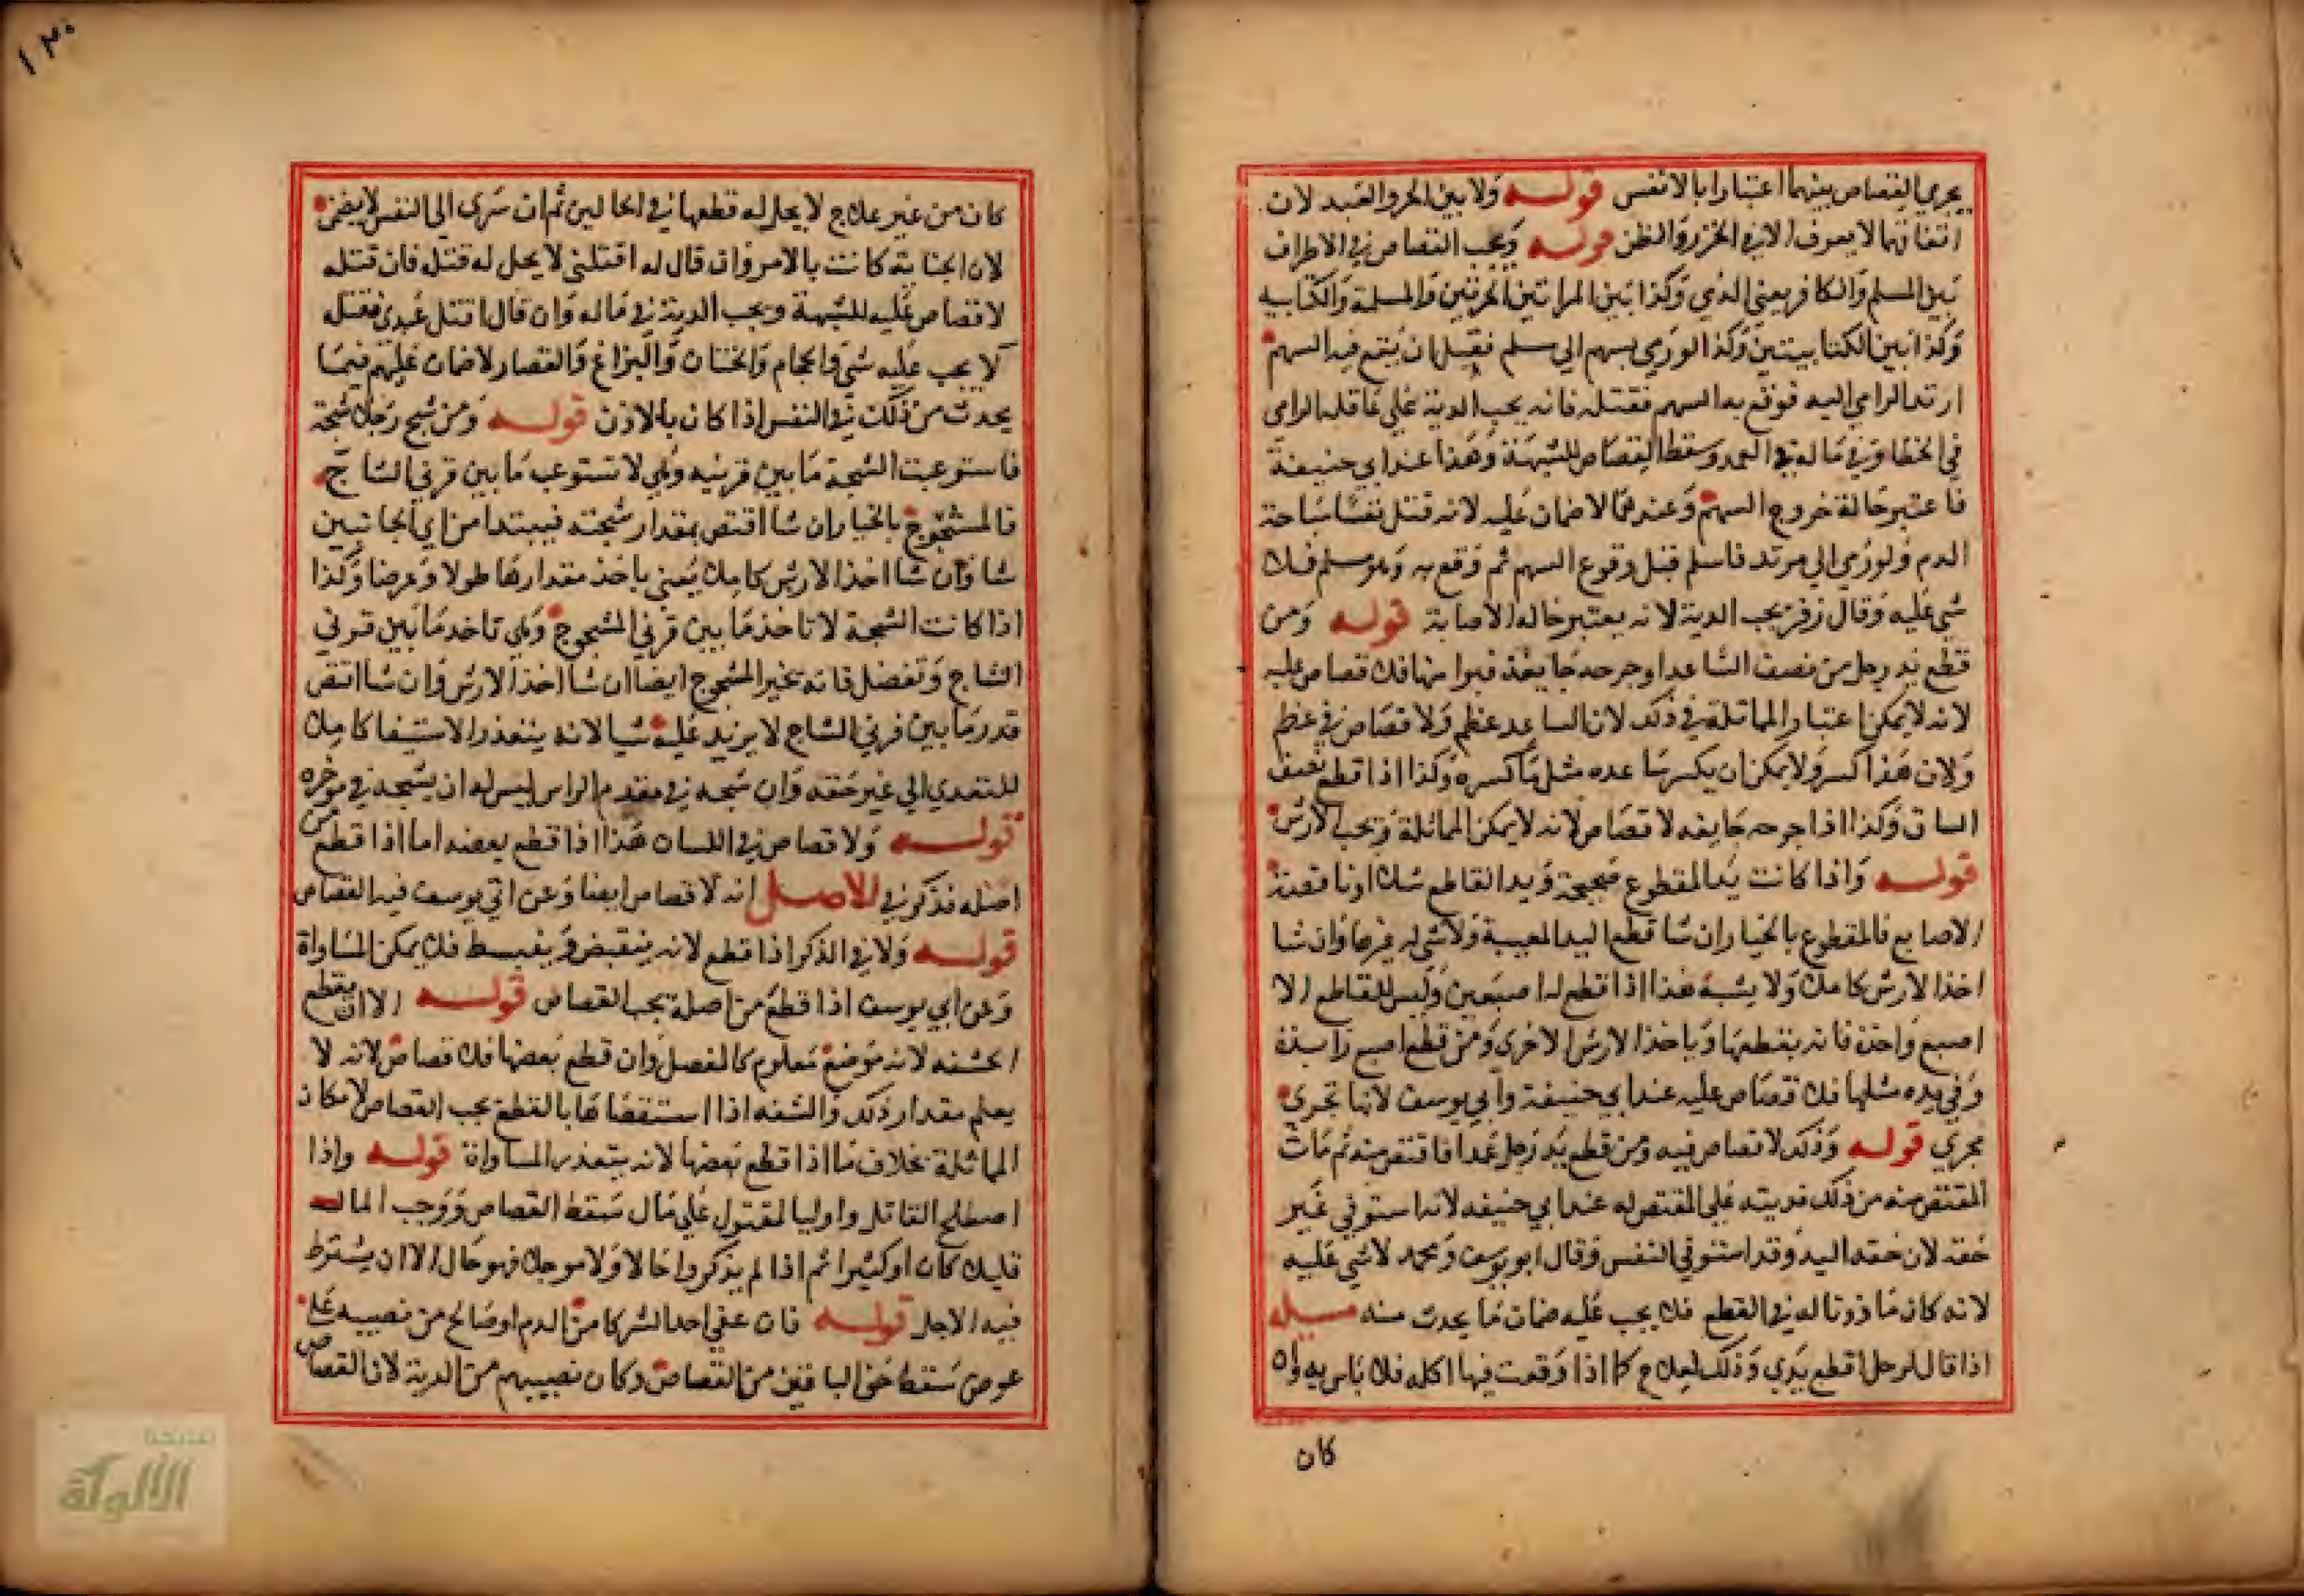 يجري القصاص بينهما اعتبارا بالانفس قوله ولا بين الحر والعبد لان
اتفاقهما لا يعرف الا بالحزر والظن قوله ويجب القصاص في الاطراف
بين المسلم والكافر يعني الذمي وكذا بين المراتين الحرتين والمسلمة والكتابيه
وكذا بين الكتابيتين وكذا لو رمي بسهم الي مسلم فقبل ان يقع فيه السهم
ارتد الرامي اليه فوقع به السهم فقتله فانه يجب الدية علي عاقله الرامي
في الخطا وفي ماله في العمد وسقط القصاص للشبهة وهذا عند ابي حنيفة
فاعتبر حالة خروج السهم وعندهما لا ضمان عليه لانه قتل نفسا مباحة
الدم ولو رمي الي مرتد فاسلم قبل وقوع السهم ثم وقع به وهو مسلم فلا
شي عليه وقال زفر يجب الدية لانه يعتبر حاله الاصابة قوله ومن
قطع يد رجل من نصف الساعد او جرحه جايفة فبرا منها فلا قصاص عليه
لانه لا يمكن اعتبار المماثلة في ذلك لان الساعد عظم ولا قصاص في عظم
ولان هذا كسر ولا يمكن ان يكسر ساعده مثل ما كسره وكذا اذا قطع نصف
الساق وكذا اذا جرحه جايفه لا قصاص لانه لا يمكن المماثلة ويجب الارش
قوله واذا كانت يد المقطوع صحيحة ويد القاطع شلا او ناقصة
الاصابع فالمقطوع بالخيار ان شا قطع اليد المعيبة ولا شي له غيرها وان شا
اخذ الارش كاملا ولا يشبه هذا اذا قطع له اصبعين وليس للقاطع الا
اصبع واحدة فانه يقطعها وياخذ الارش الاخري ومن قطع اصبع زايدة
وفي يده مثلها فلا قصاص عليه عند ابي حنيفة وابي يوسف لانها تجري
مجري قوله وذلك لا قصاص فيه ومن قطع يد رجل عمدا فاقتص منه ثم مات
المقتص منه من ذلك فديته علي المقتص له عند ابي حنيفه لانه استوفي غير
حقه لان حقه اليد وقد استوفي النفس وقال ابو يوسف ومحمد لا شي عليه
لانه كان ماذونا له في القطع فلا يجب عليه ضمان ما يحدث منه مسيله
اذا قال لرجل اقطع يدي وذلك لعلاج كما اذا وقعت فيها اكله فلا باس به وان
كان
١٣٠
كان من غير علاج لا يحل له قطعها في الحالين ثم ان سري الي النفس لا يضمن
لان الجناية كانت بالامر وان قال له اقتلني لا يحل له قتله فان قتله
لا قصاص عليه للشبهة ويجب الدية في ماله وان قال اقتل عبدي فقتله
لا يجب عليه شي والحجام والختان والبزاغ والقصار لا ضمان عليهم فيما
يحدث من ذلك في النفس اذا كان بالاذن قوله ومن شج رجلا شجة
فاستوعبت الشجة ما بين قرنيه وهي لا تستوعب ما بين قرني الشاج
فالمشجوج بالخيار ان شا اقتص بمقدار شجته فيبتدا من اي الجانبين
شا وان شا اخذ الارش كاملا يعني ياخذ مقدارها طولا وعرضا وكذا
اذا كانت الشجة لا تاخذ ما بين قرني المشجوج وهي تاخد ما بين قرني
الشاج وتفضل فانه يخير المشجوج ايضا ان شا اخذ الارش وان شا اقتص
قدر ما بين قرني الشاج لا يزيد عليه شيا لانه يتعذر الاستيفا كاملا
للتعدي الي غير حقه وان شجه في مقدم الراس ليس له ان يشجه في موخره
قوله ولا قصاص في اللسان هذا اذا قطع بعضه اما اذا قطع من
اصله فذكر في الاصل انه لا قصاص ايضا وعن ابي يوسف فيه القصاص
قوله ولا في الذكر اذا قطع لانه ينقبض وينبسط فلا يمكن المساواة
وعن ابي يوسف اذا قطع من اصله يجب القصاص قوله الا ان يقطع
الحشفه لانه موضع معلوم كالمفصل وان قطع بعضها فلا قصاص لانه لا
يعلم مقدار ذلك والشفه اذا استقصاها بالقطع يجب القصاص لامكان
المماثلة بخلاف ما اذا قطع بعضها لانه يتعذر المساواة قوله واذا
اصطلح القاتل واوليا المقتول علي مال سقط القصاص ووجب المال
قليلا كان او كثيرا ثم اذا لم يذكروا حالا ولا موجلا فهو حال الا ان يشترط
فيه الاجل قوله فان عفي احد الشركا من الدم او صالح من نصيبه علي
عوض سقط حق الباقين من القصاص وكان نصيبهم من الدية لان القصاص
شبكة
الألوكة